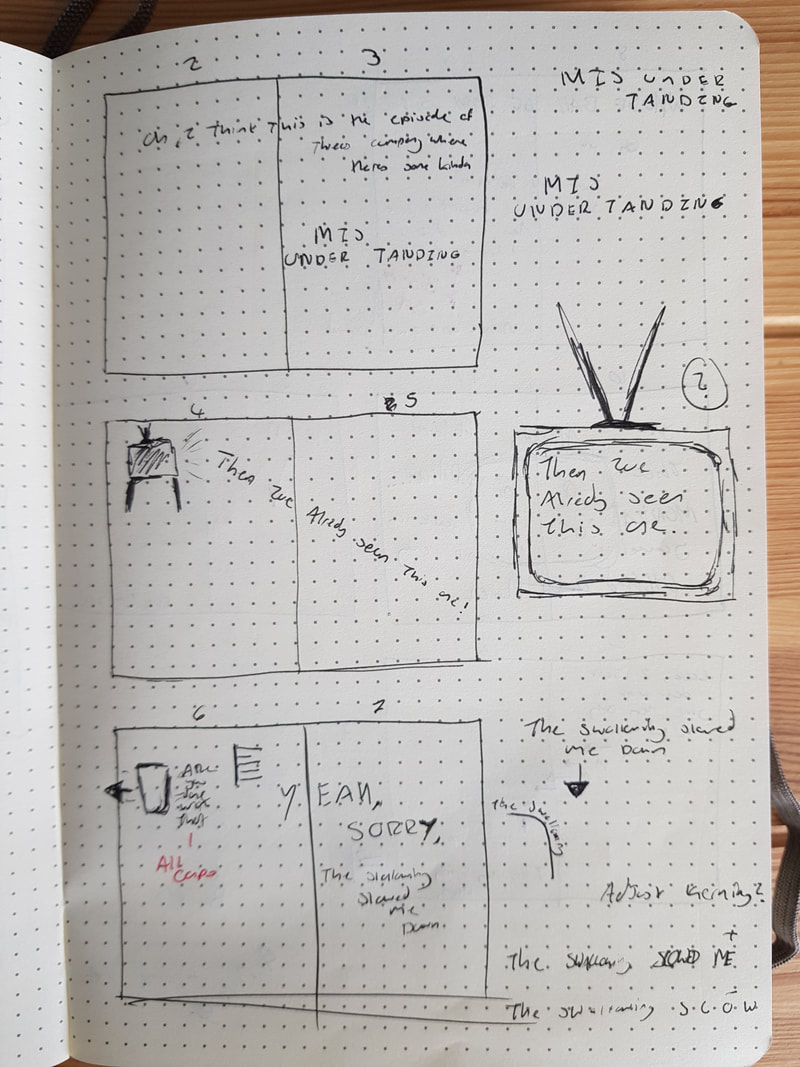 2 3
Oh, I think This is the episode of
Threes company where
theres some kinda
MIS
UNDER TANDING
MIS UNDER
TANDING
MIS
UNDER TANDING
4 5
Then Ive
Already seen This one!
2
Then Ive
Already seen
This one.
6 7
Are
you
done
with
that
All
caps
YEAH,
SORRY,
The swallowing
slowed
me
down.
The swallowing slowed
me Down
The swallowing
Adjust Kerning?
+
The swallowing SLOWED ME
-
The swallowing S.L.O.W